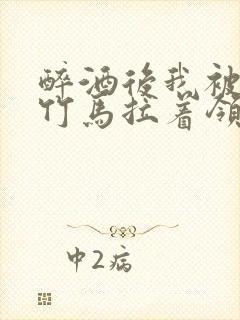 醉酒後我被
竹馬拉着領
中2病